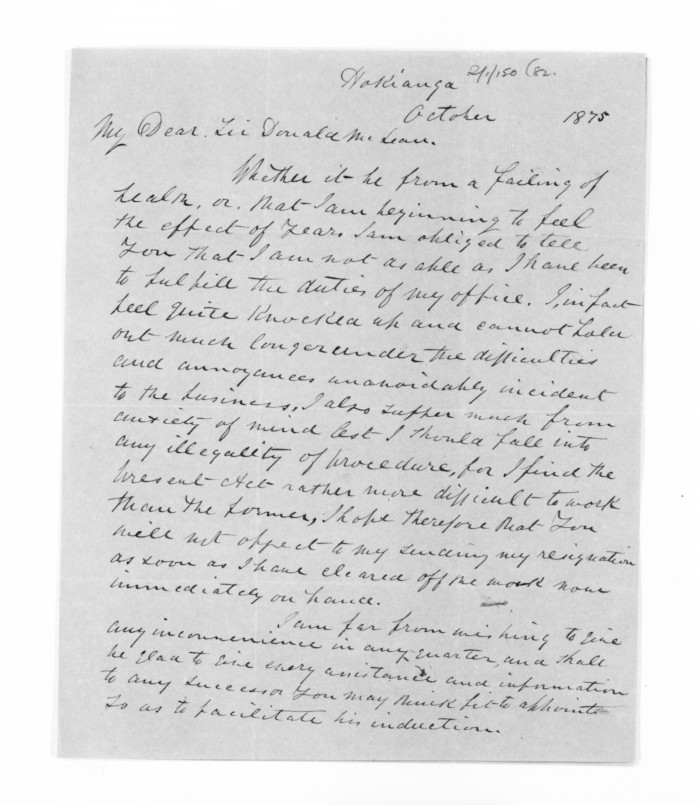 2/1/150 (82.
Hokianga
October 1875
My Dear Sir Donald McLean.
Whether it be from a failing of
health, or, that I am beginning to feel
the effect of years I am obliged to tell
You that I am not as able as I have been
to fulfill the duties of my office. I, in fact
feel quite knocked up and cannot hold
out much longer under the difficulties
and annoyances unavoidably incident
to the business, I also suffer much from
anxiety of mind lest I should fall into
any illegality of procedure, for I find the
present Act rather more difficult to work
than the former, I hope therefore that You
will not object to my sending my resignation
as soon as I have cleared off the work now
immediately on hand.
I am far from wishing to give
any inconvenience in any quarter, and shall
be glad to give every assistance and information
to any successor You may think fit to appoint
so as to facilitate his induction.